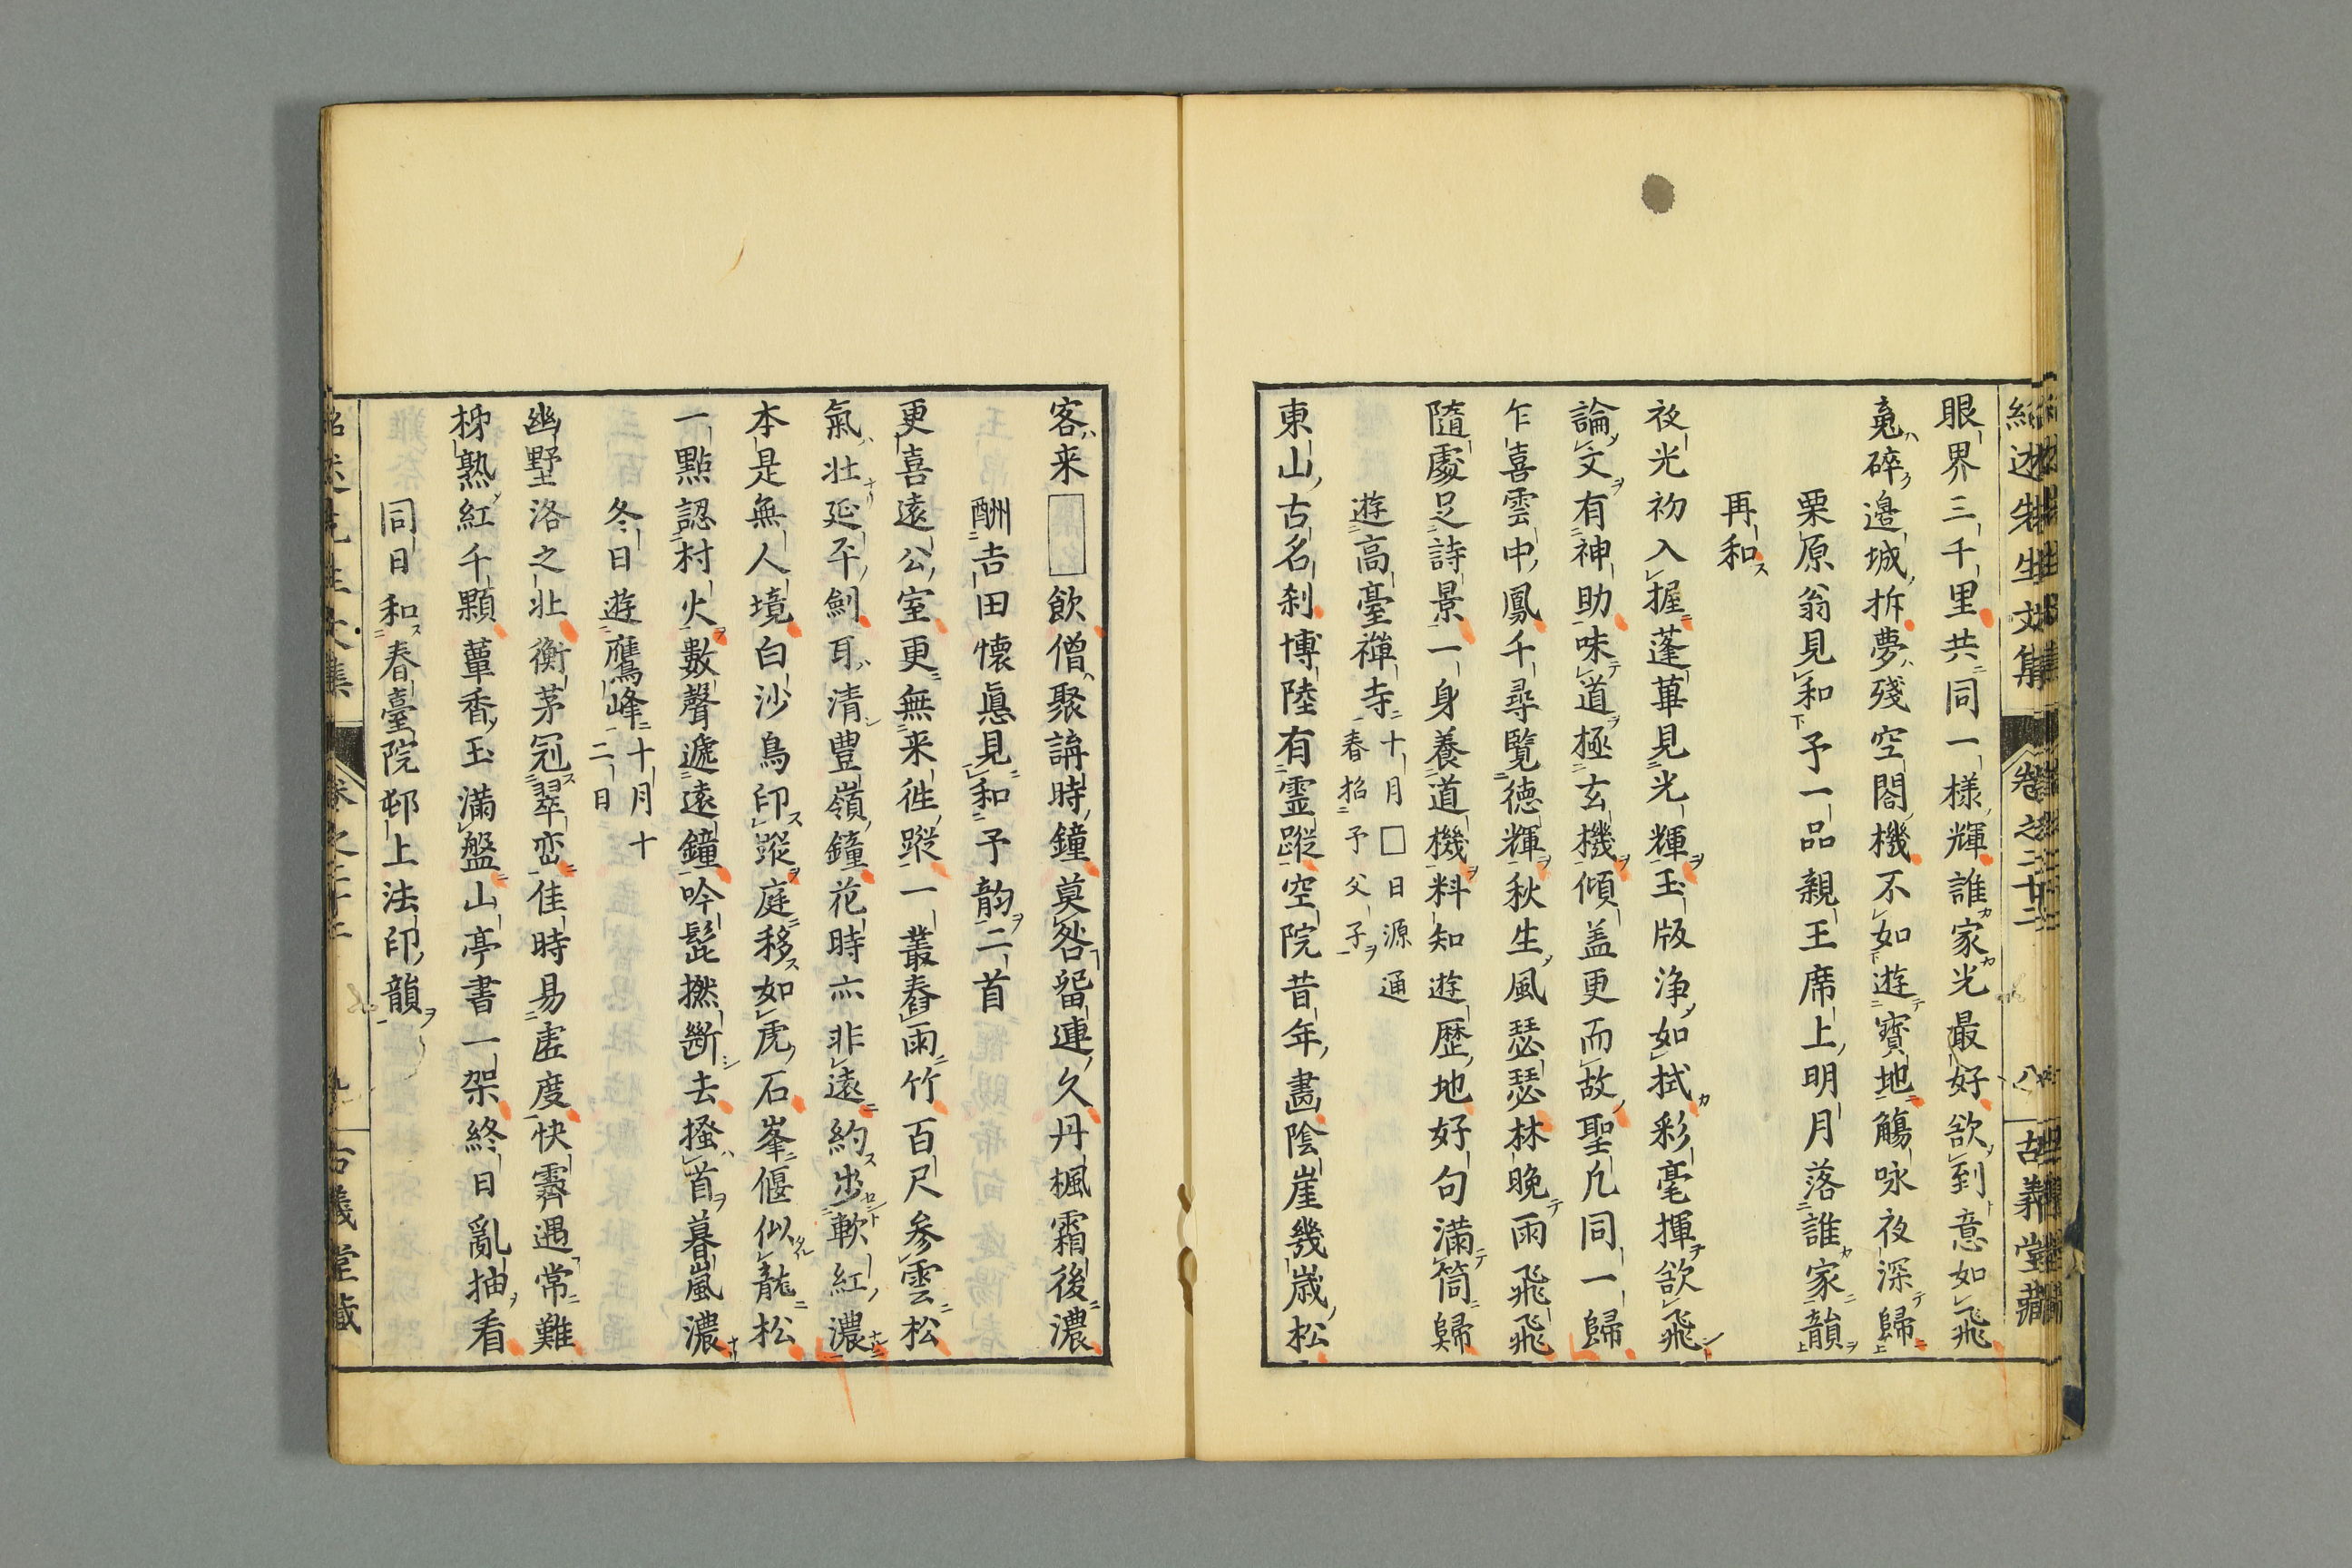 紹述先生文集 卷之二十二 八 古義堂藏
眼界三千里共同一樣輝誰家光最好欲到意如飛
兎碎邉城拆夢殘空閣機不如遊寶地觴咏夜深歸
栗原翁見和予一品親王席上明月落誰家韻
再和
夜光初入握蓬蓽見光輝玉版淨如拭彩毫揮欲飛
論文有神助味道極玄機傾盖更而故聖凡同一歸
乍喜雲中鳳千尋覽德輝秋生風瑟瑟林晚雨飛飛
隨處足詩景一身養道機料知遊歷地好句滿筒歸
遊高臺禪寺 十月□日源通
春招予父子
東山古名刹博陸有霊蹤空院昔年畵陰崖幾歳松
客来□飲僧聚講時鐘莫咎留連久丹楓霜後濃
酬吉田懷惪見和予韵二首
更喜遠公室更無来徃蹤一叢春雨竹百尺参雲松
氣壯延平劍耳清豊嶺鐘花時亦非遠約步軟紅濃
本是無人境白沙鳥印蹤庭移如虎石峯偃似龍松
一點認村火數聲遞遠鐘吟髭撚斷去搔首暮嵐濃
冬日遊鷹峰 十月十
二日
幽野洛之北衡茅冠翠巒佳時易虗度快霽遇常難
柹熟紅千顆蕈香玉滿盤山亭書一架終日亂抽看
同日和春臺院邨上法印韻
紹述先生文集 卷之二十二 九 古義堂藏